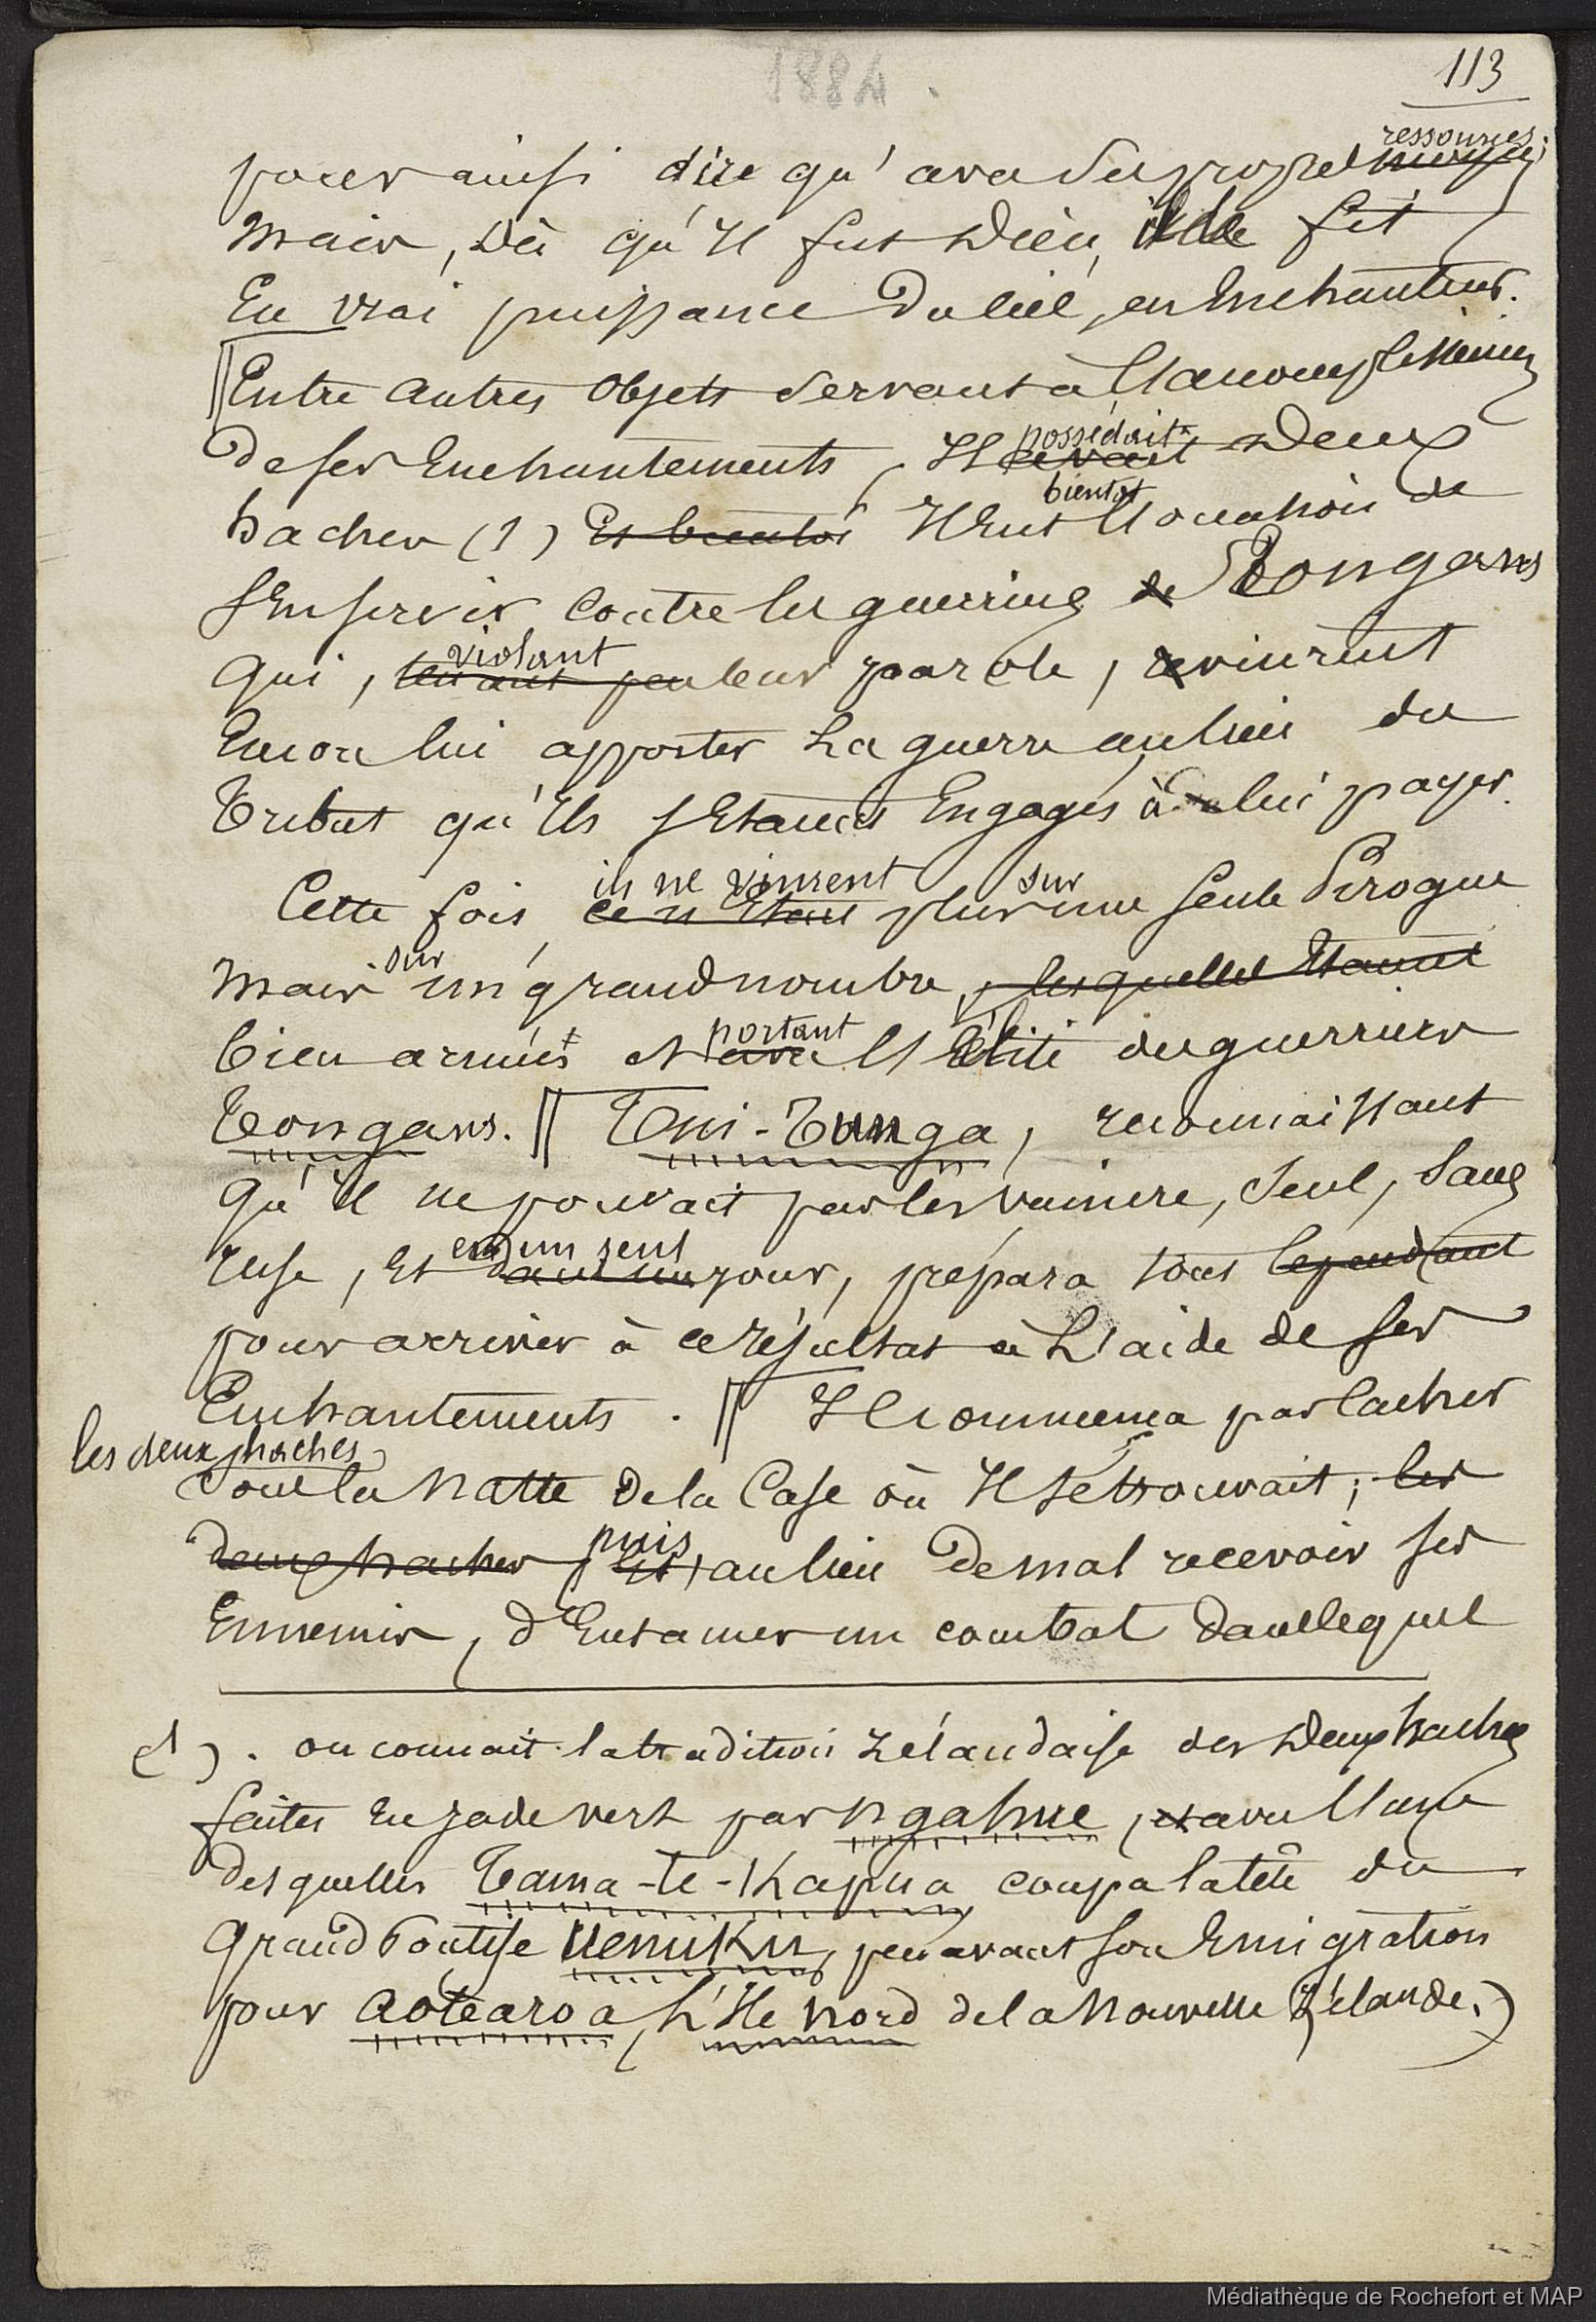 1884.
113
pour ainsi dire qu'avec ses propres moyens ressources;
mais, dès qu'Il fut Dieu, il le fit
En vrai puissance du Ciel, en Enchanteur.
Entre autres objets servant à l'accomplissement
de ses Enchantements, Il avait possédait deux
haches (1) Et bientôt Il Eut bientôt l'occasion de
s'En servir contre les guerriers de Tongans
qui, tenant peu violant leur parole, revinrent
Encore lui apporter La guerre au lieu du
Tribut qu'Ils s'Etaient Engagés à lui payer.
Cette fois ce n'Etait ils ne vinrent plus sur une seule Pirogue
mais sur un grand nombre, lesquelles Etaient
bien armées et avec portant l'Elite des guerriers
Tongans. Tui-Tunga, reconnaissant
qu'Il ne pouvait pas les vaincre, seul, sans
ruse, Et dans un en un seul jour, prépara tout cependant
pour arriver à ce résultat à L'aide de ses
Enchantements. Il commença par cacher
les deux haches
sous la natte de la Case où Il se trouvait; les
deux haches, Et puis, au lieu de mal recevoir ses
Ennemis, d'Entamer un combat dans lequel
(1). on connait la tradition zélandaise des deux haches
faites En jade vert par Ngahue, et avec l'une
desquelles Tama-te-Kapua coupa la tête du
grand Pontife Uenuku, peu avant son Emigration
pour Aotearoa, L'Ile Nord de la Nouvelle Zélande.)
Médiathèque de Rochefort et MAP